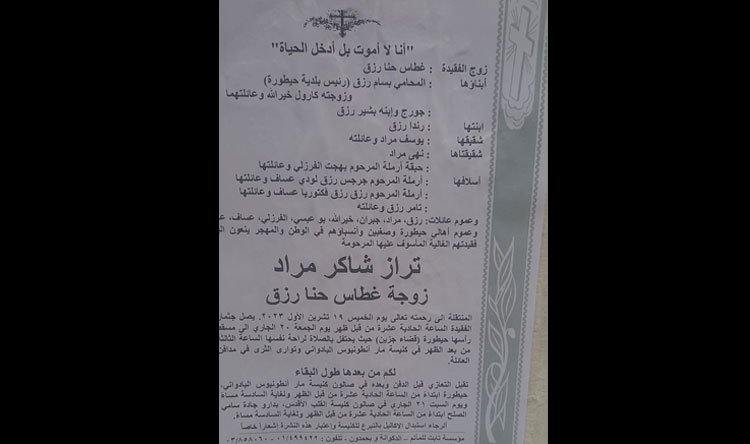 "أنا لا أموت بل أدخل الحياة"
زوج الفقيدة : غطاس حنا رزق
أبناؤها : المحامي بسام رزق (رئيس بلدية حيطورة)
وزوجته كارول خيرالله وعائلتهما
: جورج وإبنه بشير رزق
ابنتها : رندا رزق
شقيقها : يوسف مراد وعائلته
شقيقتاها : نهى مراد
: حبقة أرملة المرحوم بهجت الفرزلي وعائلتها
أسلافها : أرملة المرحوم جرجس رزق لودي عساف وعائلتها
: أرملة المرحوم رزق رزق فكتوريا عساف وعائلتها
: تامر رزق وعائلته
وعموم عائلات: رزق، مراد، جبران، خيرالله، بو عبسي، الفرزلي، عساف،
وعموم أهالي حيطورة وصفبين وأنسباؤهم في الوطن والمهجر ينعون
فقيدتهم الغالية المأسوف عليها المرحومة
تراز شاكر مراد
زوجة غطاس حنا رزق
المنتقلة الى رحمته تعالى يوم الخميس ١٩ تشرين الأول ٢٠٢٣. يصل جثمان
الفقيدة الساعة الحادية عشرة من قبل ظهر يوم الجمعة ٢٠ الجاري الى مسقط
رأسها حيطورة (قضاء جزين) حيث يحتفل بالصلاة لراحة نفسها الساعة الثالثة
من بعد الظهر في كنيسة مار أنطونيوس البادواني وتوارى الثرى في مدافن
العائلة.
لكم من بعدها طول البقاء
تقبل التعازي قبل الدفن وبعده في صالون كنيسة مار أنطونيوس البادواني،
حيطورة ابتداءً من الساعة الحادية عشرة من قبل الظهر ولغاية السادسة مساءً،
ويوم السبت ٢١ الجاري في صالون كنيسة القلب الأقدس، بدارو جادة سامي
الصلح ابتداءً من الساعة الحادية عشرة من قبل الظهر ولغاية السادسة مساءً.
الرجاء استبدال الاكاليل بالتبرع للكنيسة وإعتبار هذه النشرة إشعاراً خاصاً
مؤسسة ثابت للمآتم - الدكوانة و بحمدون - تلفون : ٠١/٤٩٩٤٢٢ - ٠٣/٨٥٨٠٦٠